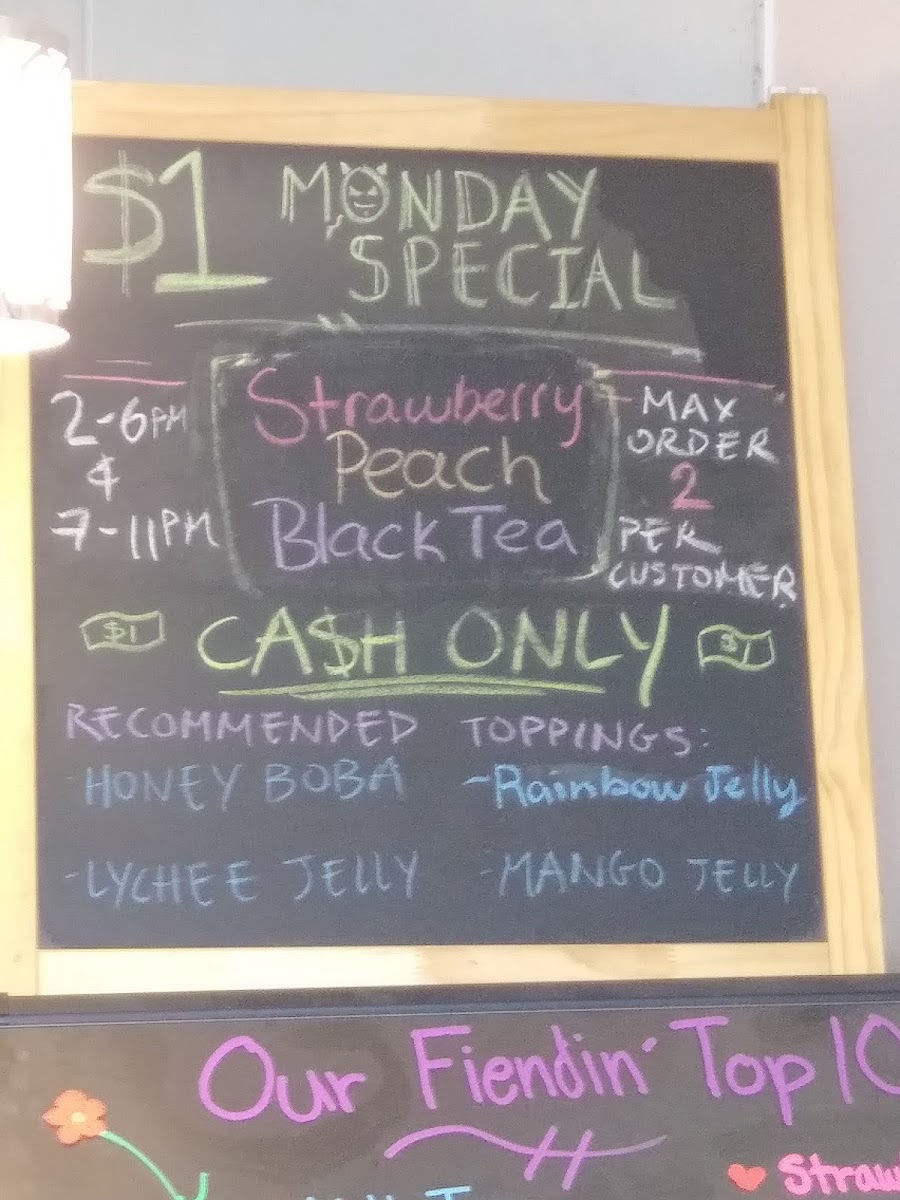 $1 MONDAY
SPECIAL
2-6PM
&
7-11PM
Strawberry
Peach
Black Tea
MAX
ORDER
2
PER
CUSTOMER
$1 CA$H ONLY $1
RECOMMENDED TOPPINGS:
-HONEY BOBA -Rainbow Jelly
-LYCHEE JELLY -MANGO JELLY
Our Fiendin' Top 10